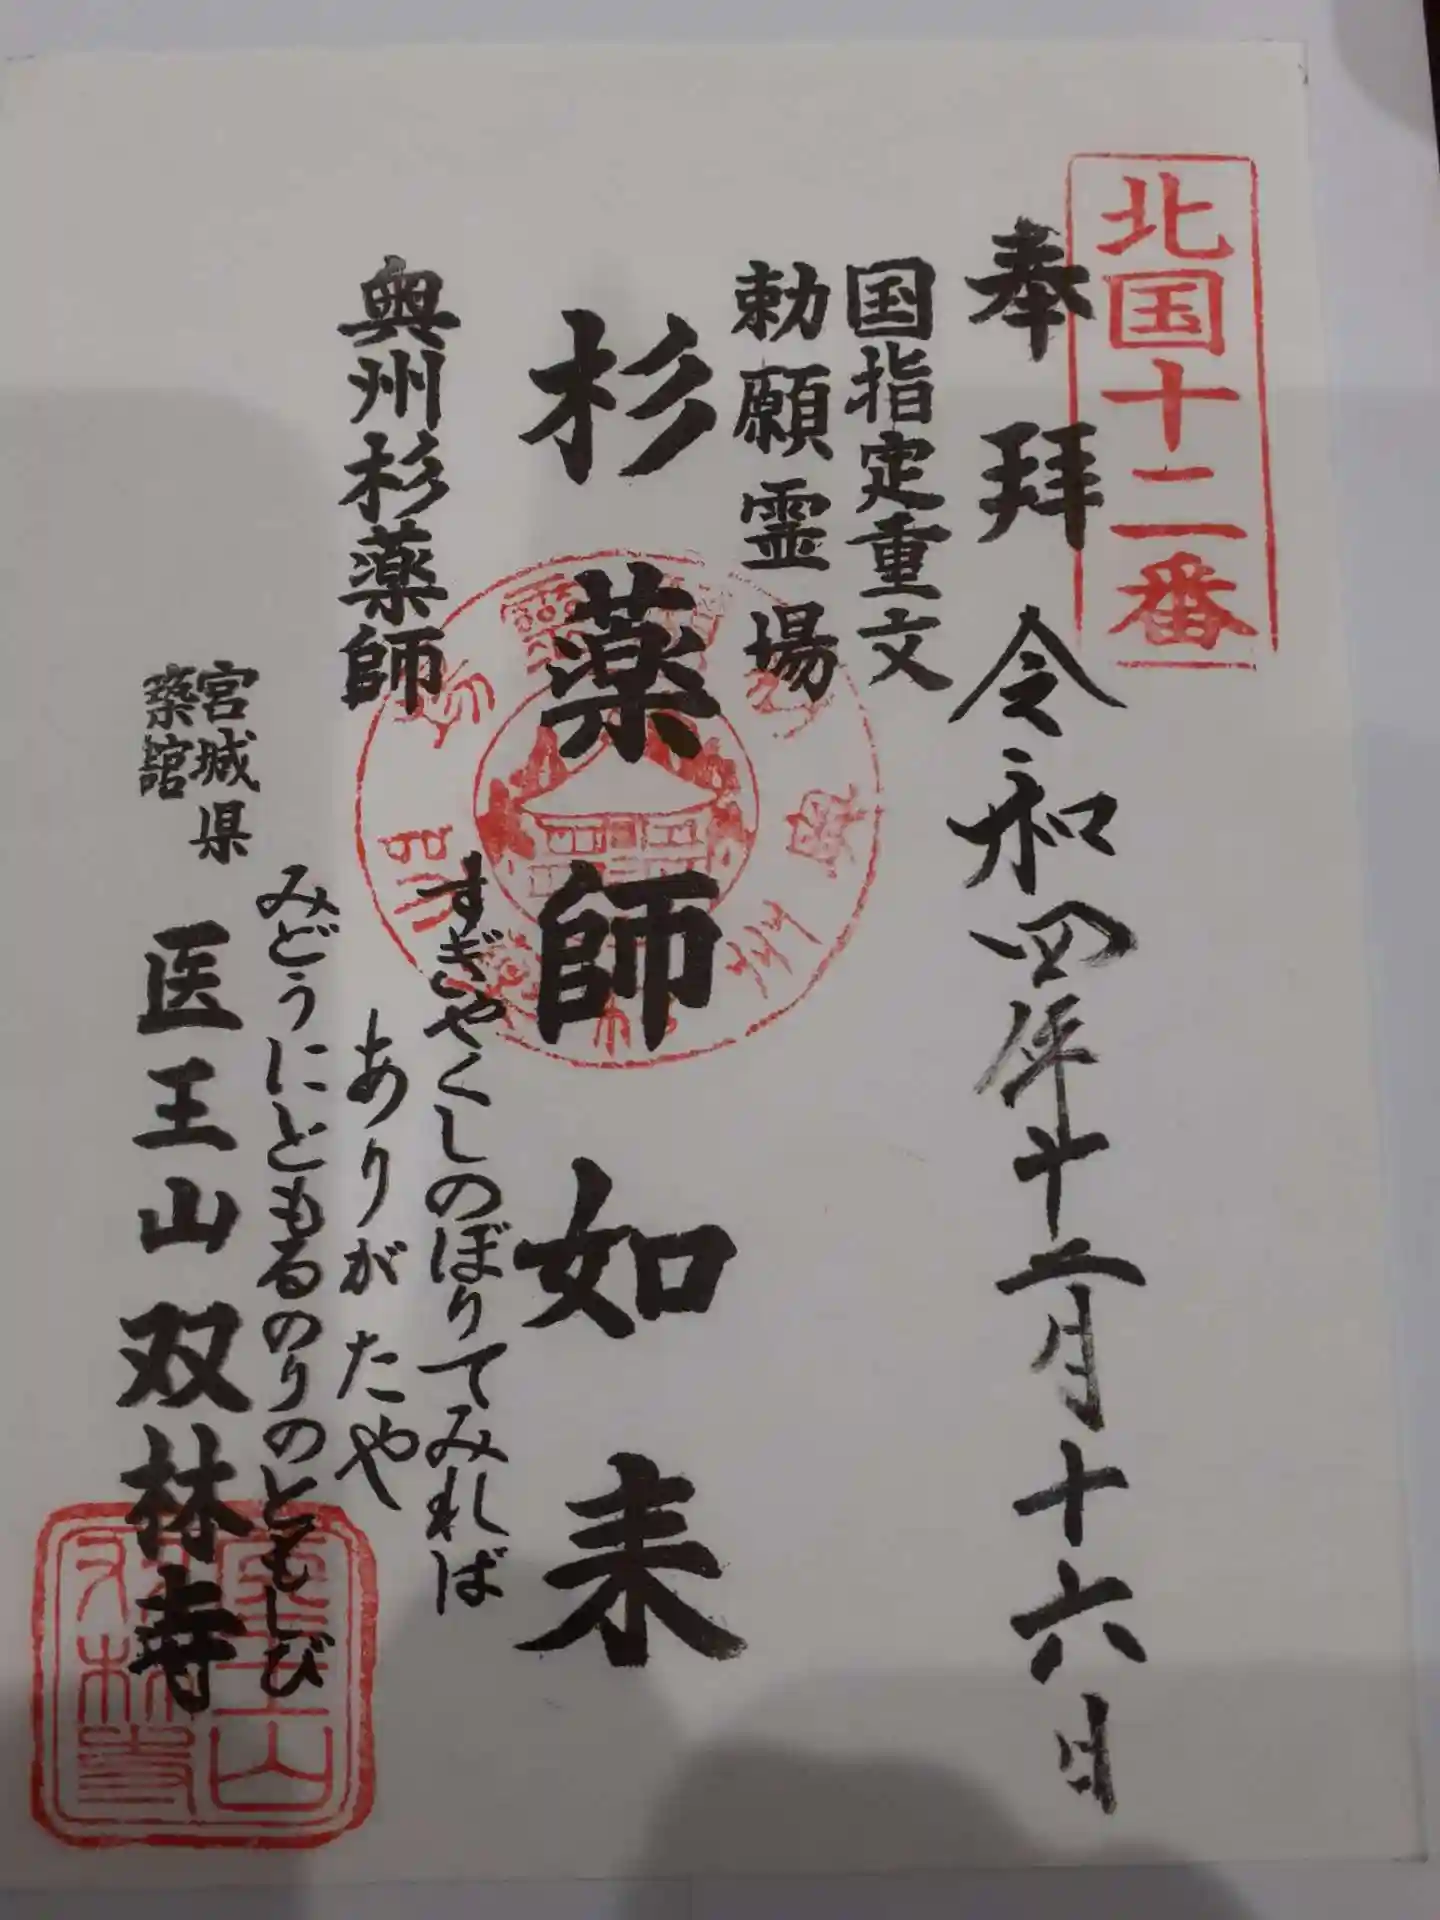 北国十二番
奉拜 令和四年十二月十六日
国指定重文
勅願霊場
杉薬師如来
すぎやくしのぼりてみれば
ありがたや
みどうにともるのりのともしび
奥州杉薬師
宮城県
築館
医王山 双林寺